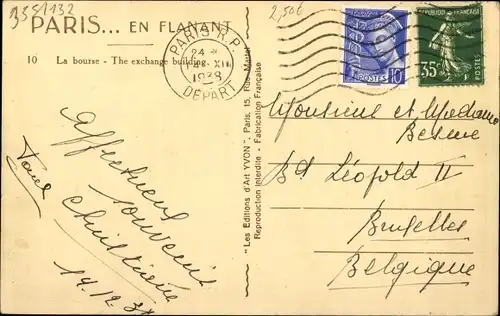 B551132
2,50 €
PARIS... EN FLANANT
10 La bourse - The exchange building.
PARIS R.P.
24
XII
1938
DEPART
POSTES
10
REPUBLIQUE FRANÇAISE
35
"Les Editions d'Art YVON", Paris, 15, Rue Martel
Reproduction Interdite - Fabrication Française
Affectueux
souvenir
Christiane
14.12.38
Monsieur et Madame
Bd Léopold II
Bruxelles
Belgique